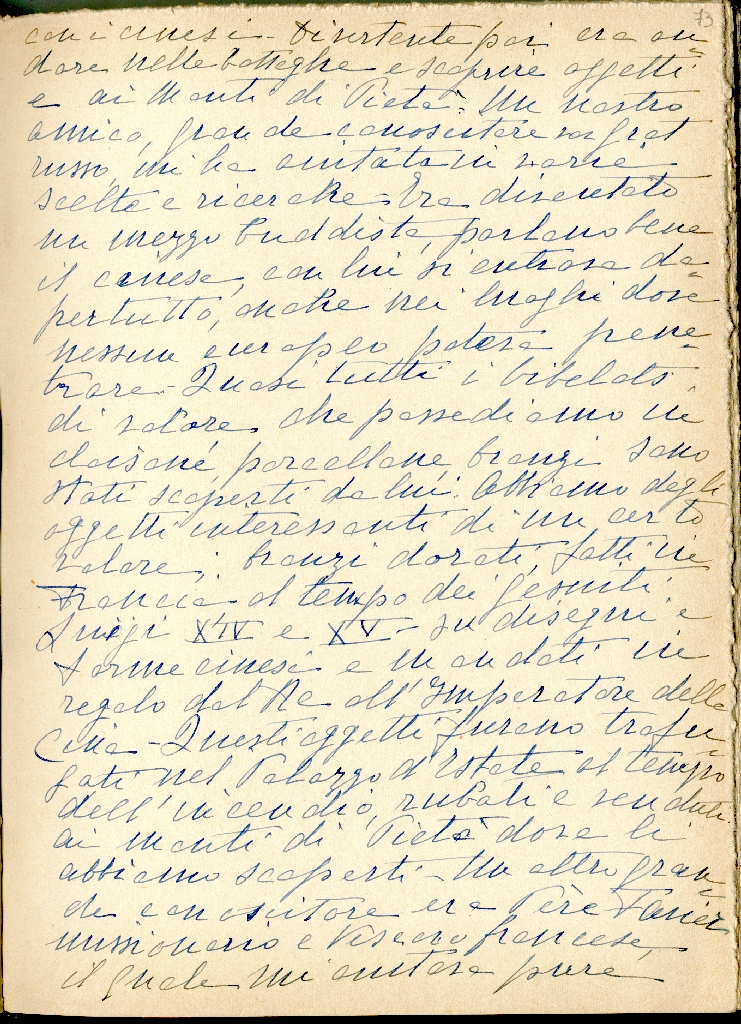 73
con i cinesi - Divertente poi era an-
dare nelle botteghe e scoprire oggetti
e ai Monti di Pietà. Un nostro
amico, grande conoscitore
russo, mi ha aiutata in varie
scelte e ricerche - Era diventato
un mezzo buddista, parlano bene
il cinese, con lui si entrava da-
pertutto, anche nei luoghi dove
nessun europeo poteva pene-
trare - Quasi tutti i bibelots
di valore che possediamo in
cloisoné, porcellane, bronzi sono
stati scoperti da lui. Abbiamo degli
oggetti interessanti di un certo
valore; bronzi dorati, fatti in
Francia al tempo dei gesuiti.
Luigi XIV e XV - su disegni e
forme cinesi e mandati in
regalo dal Re all'Imperatore della
Cina - Questi oggetti furono trafu-
gati nel Palazzo d'Estate al tempo
dell'incendio, rubati e venduti
ai monti di Pietà dove li
abbiamo scoperti - Un altro gran-
de conoscitore era Père
missionario e Vescovo francese,
il quale mi aiutava pure